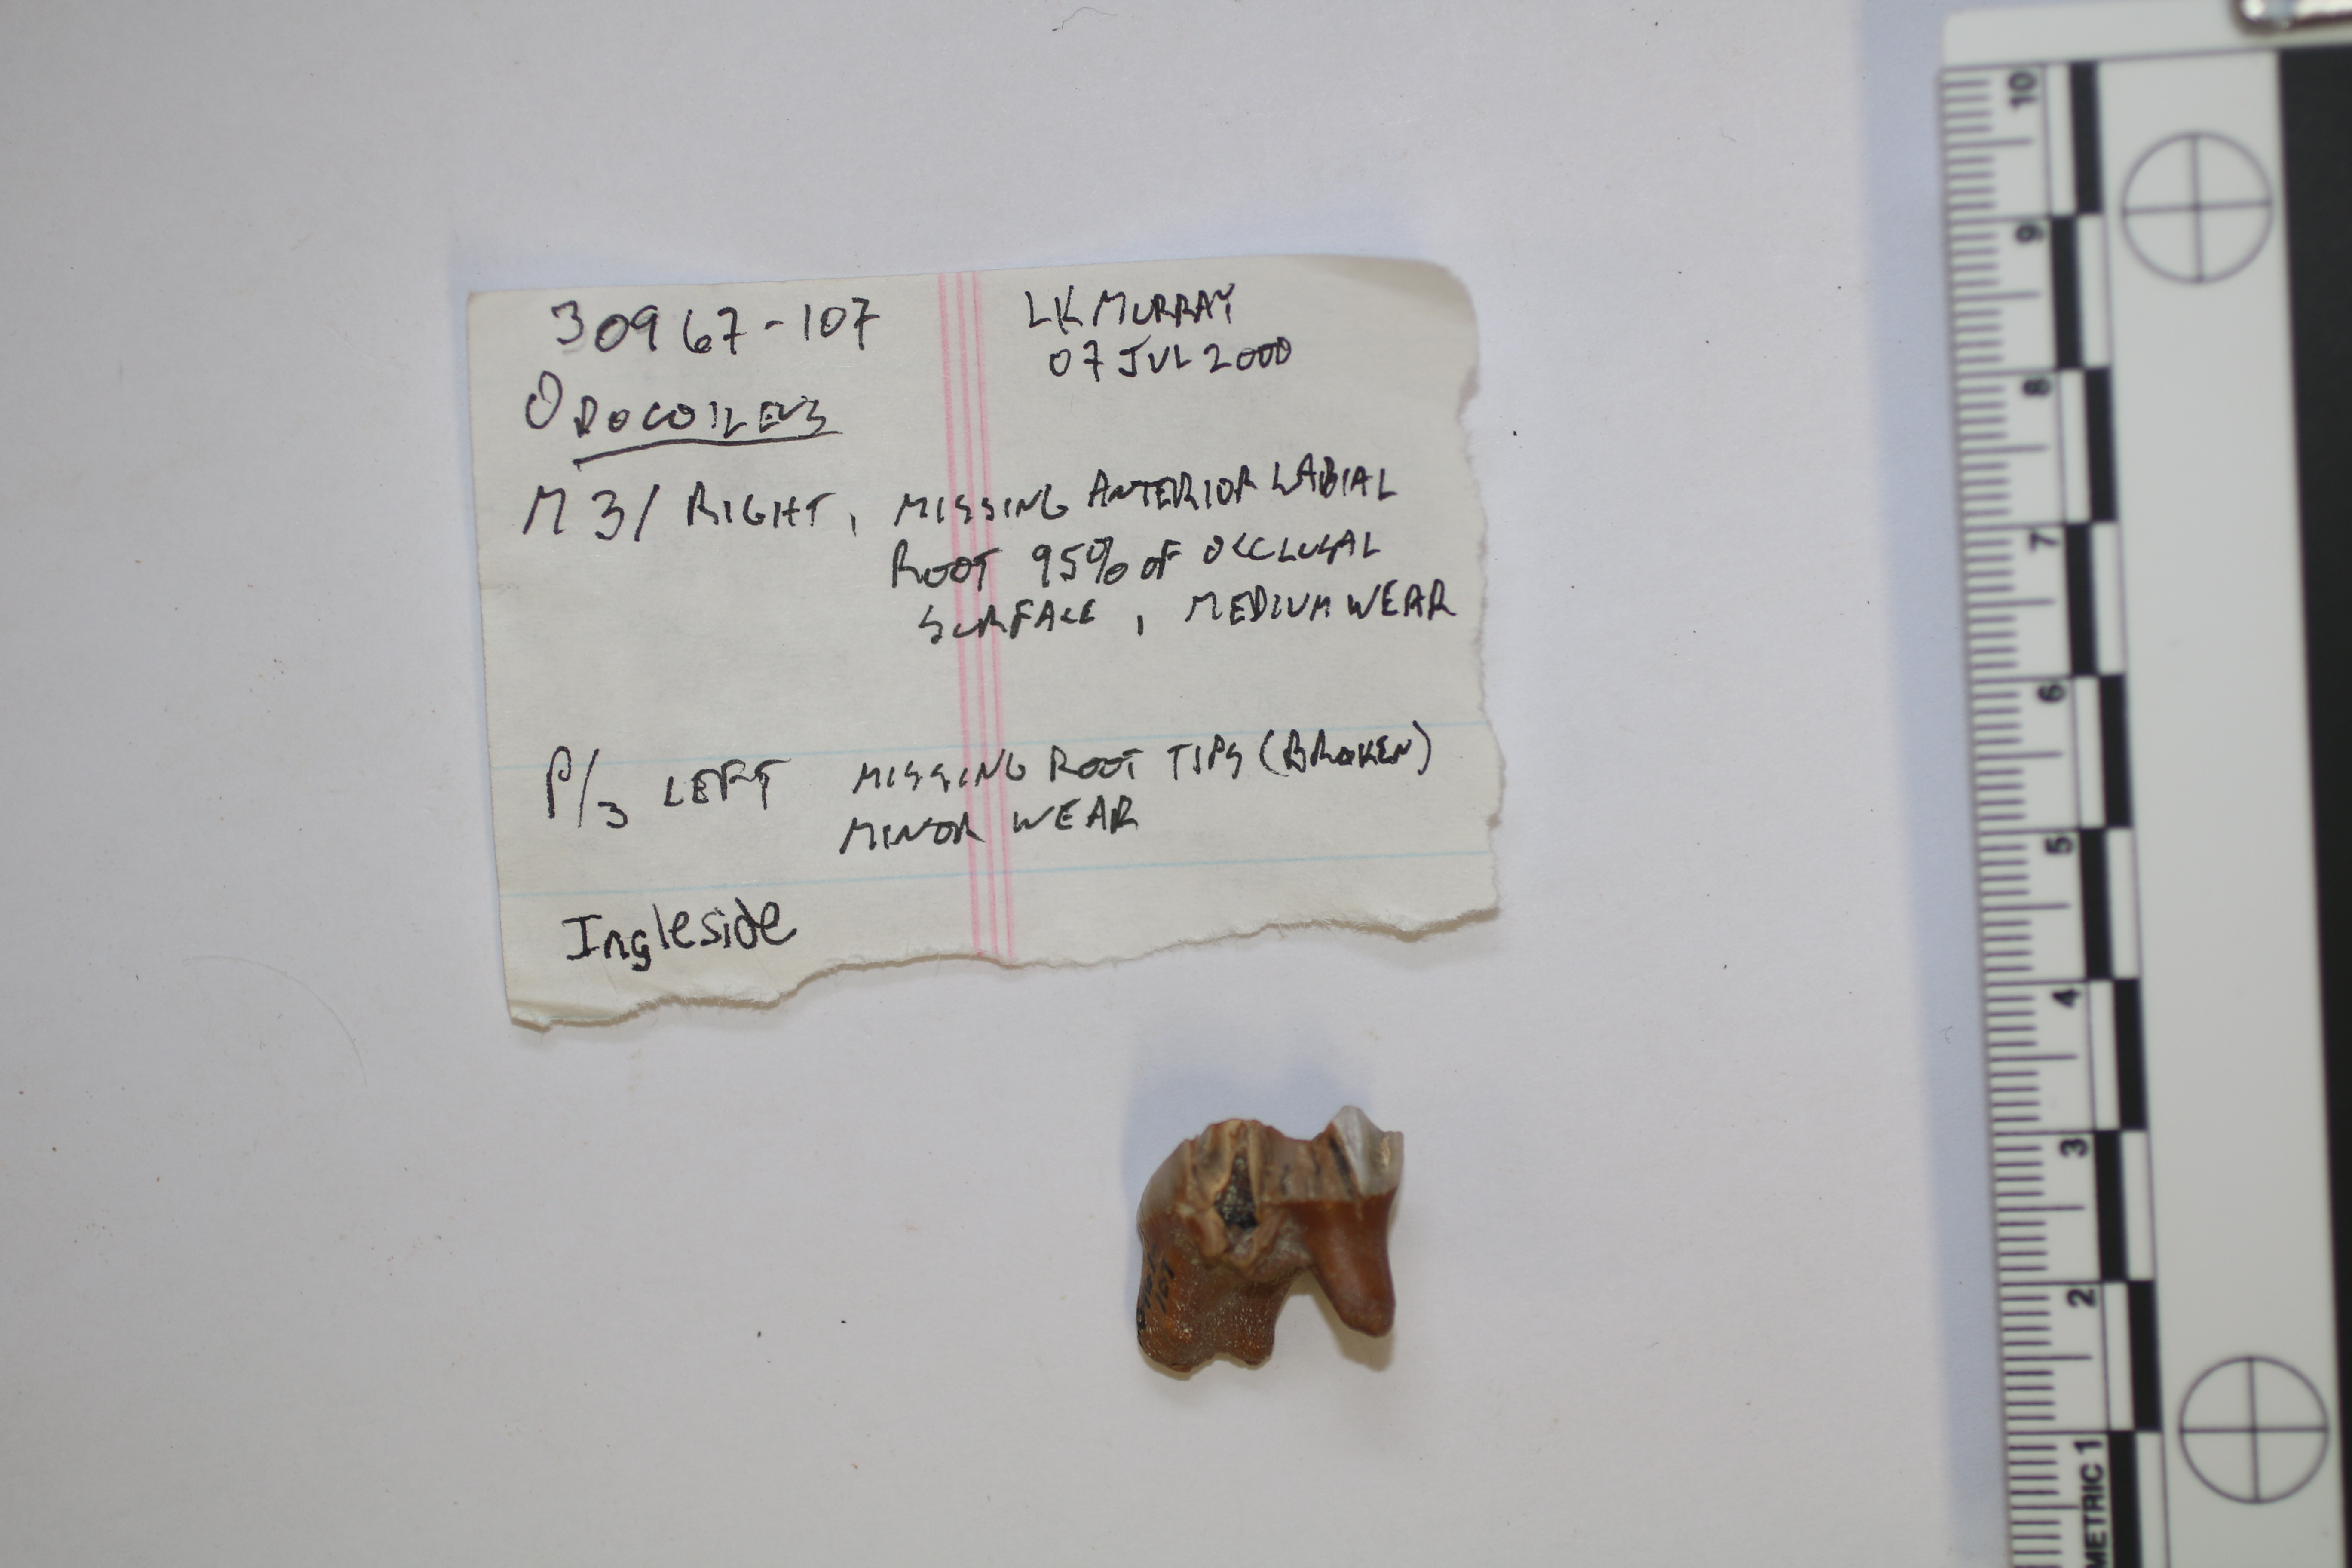 30967-107
LK MURRAY
07 JUL 2000
ODOCOILEUS
M3/ RIGHT, MISSING ANTERIOR LABIAL
ROOT 95% OF OCCLUSAL
SURFACE, MEDIUM WEAR
P/3 LEFT MISSING ROOT TIPS (BROKEN)
MINOR WEAR
Ingleside
107
METRIC 1 2 3 4 5 6 7 8 9 10